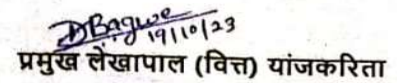 DBagwe
19/10/23
प्रमुख लेखापाल (वित्त) यांजकरिता